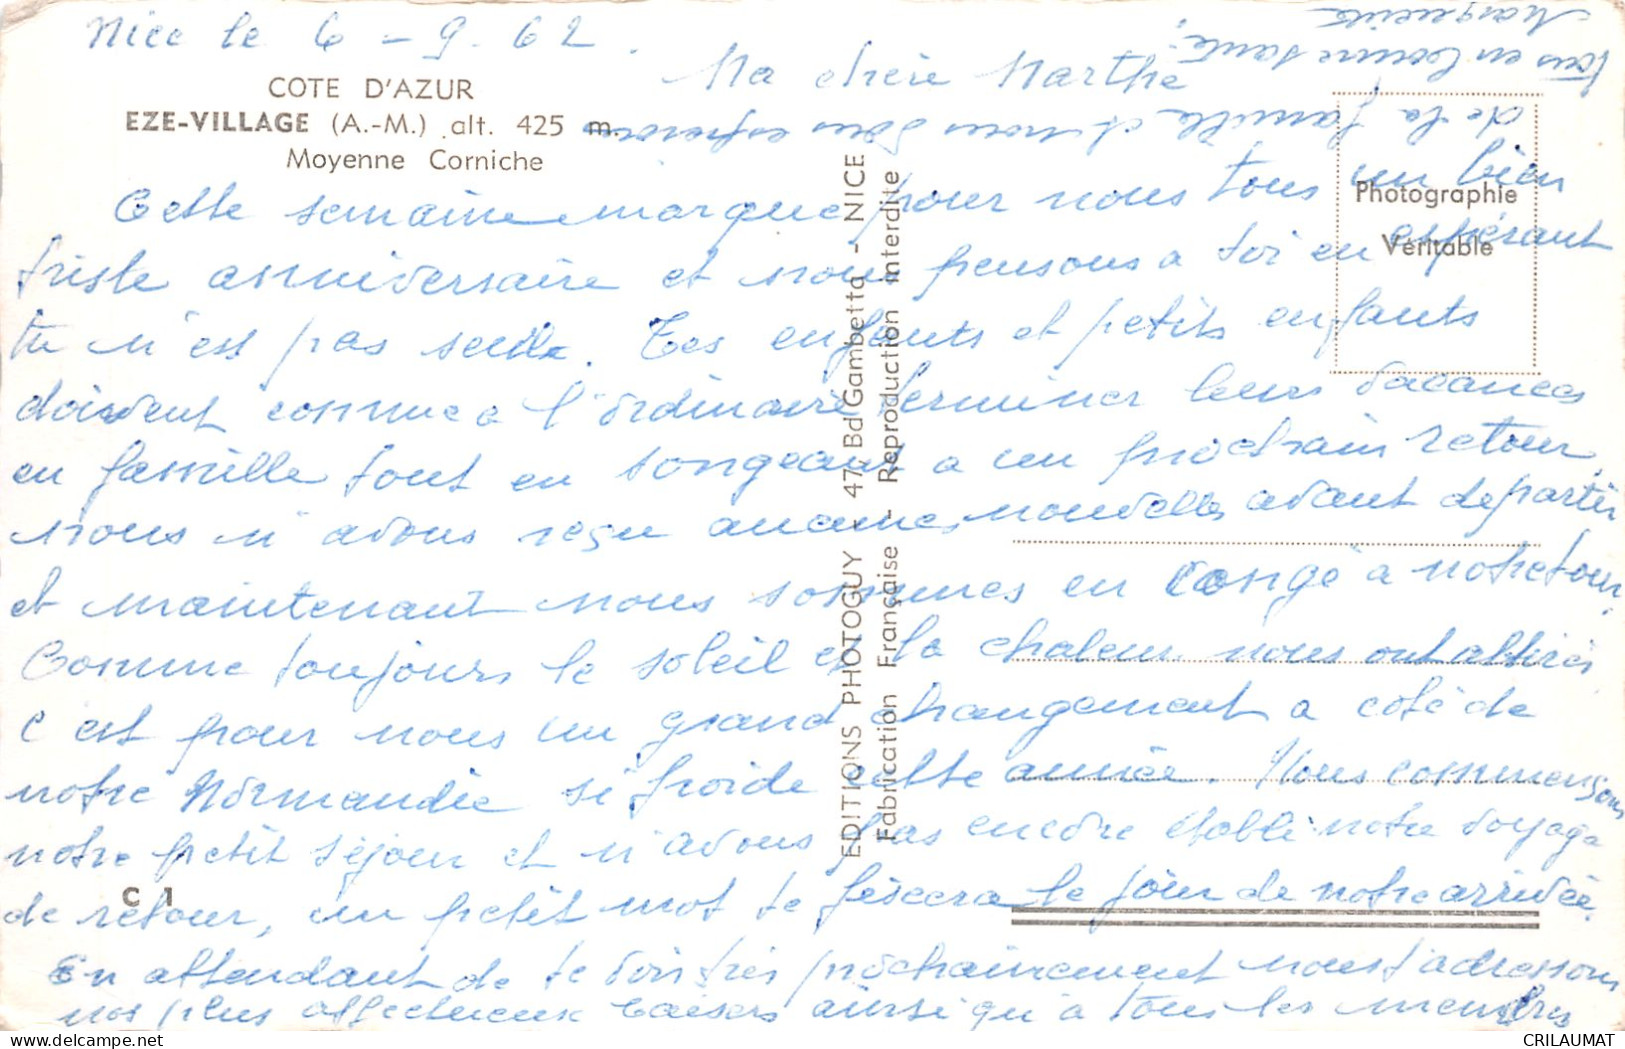 Nice le 6 - 9. 62.
Ma chère Marthe
COTE D'AZUR
EZE-VILLAGE (A.-M.) alt. 425 m.
Moyenne Corniche
Photographie
Véritable
Cette semaine marque pour nous tous un bien
triste anniversaire et nous pensons a toi en espérant
tu n'est pas seule. Tes enfants et petits enfants
doivent comme a l'ordinaire terminer leurs vacances
en famille tout en songeant a un prochain retour.
Nous n'avons reçu aucune nouvelles avant de partir
et maintenant nous sommes en congé à notre tour.
Comme toujours le soleil et la chaleur nous ont attirés
c'est pour nous un grand changement a coté de
notre Normandie si froide cette année. Nous commensons
notre petit séjour et n'avons pas encore établi notre voyage
de retour, un petit mot te fixera le jour de notre arrivée.
En attendant de te voir très prochainement nous t'adressons
nos plus affectueux baisers ainsi qu'à tous les membres
de la famille et nous vous espérons
tous en bonne santé.
Marguerite
EDITIONS PHOTOGUY - 47, Bd Gambetta - NICE
Fabrication Française - Reproduction interdite
C 1
CRILAUMAT